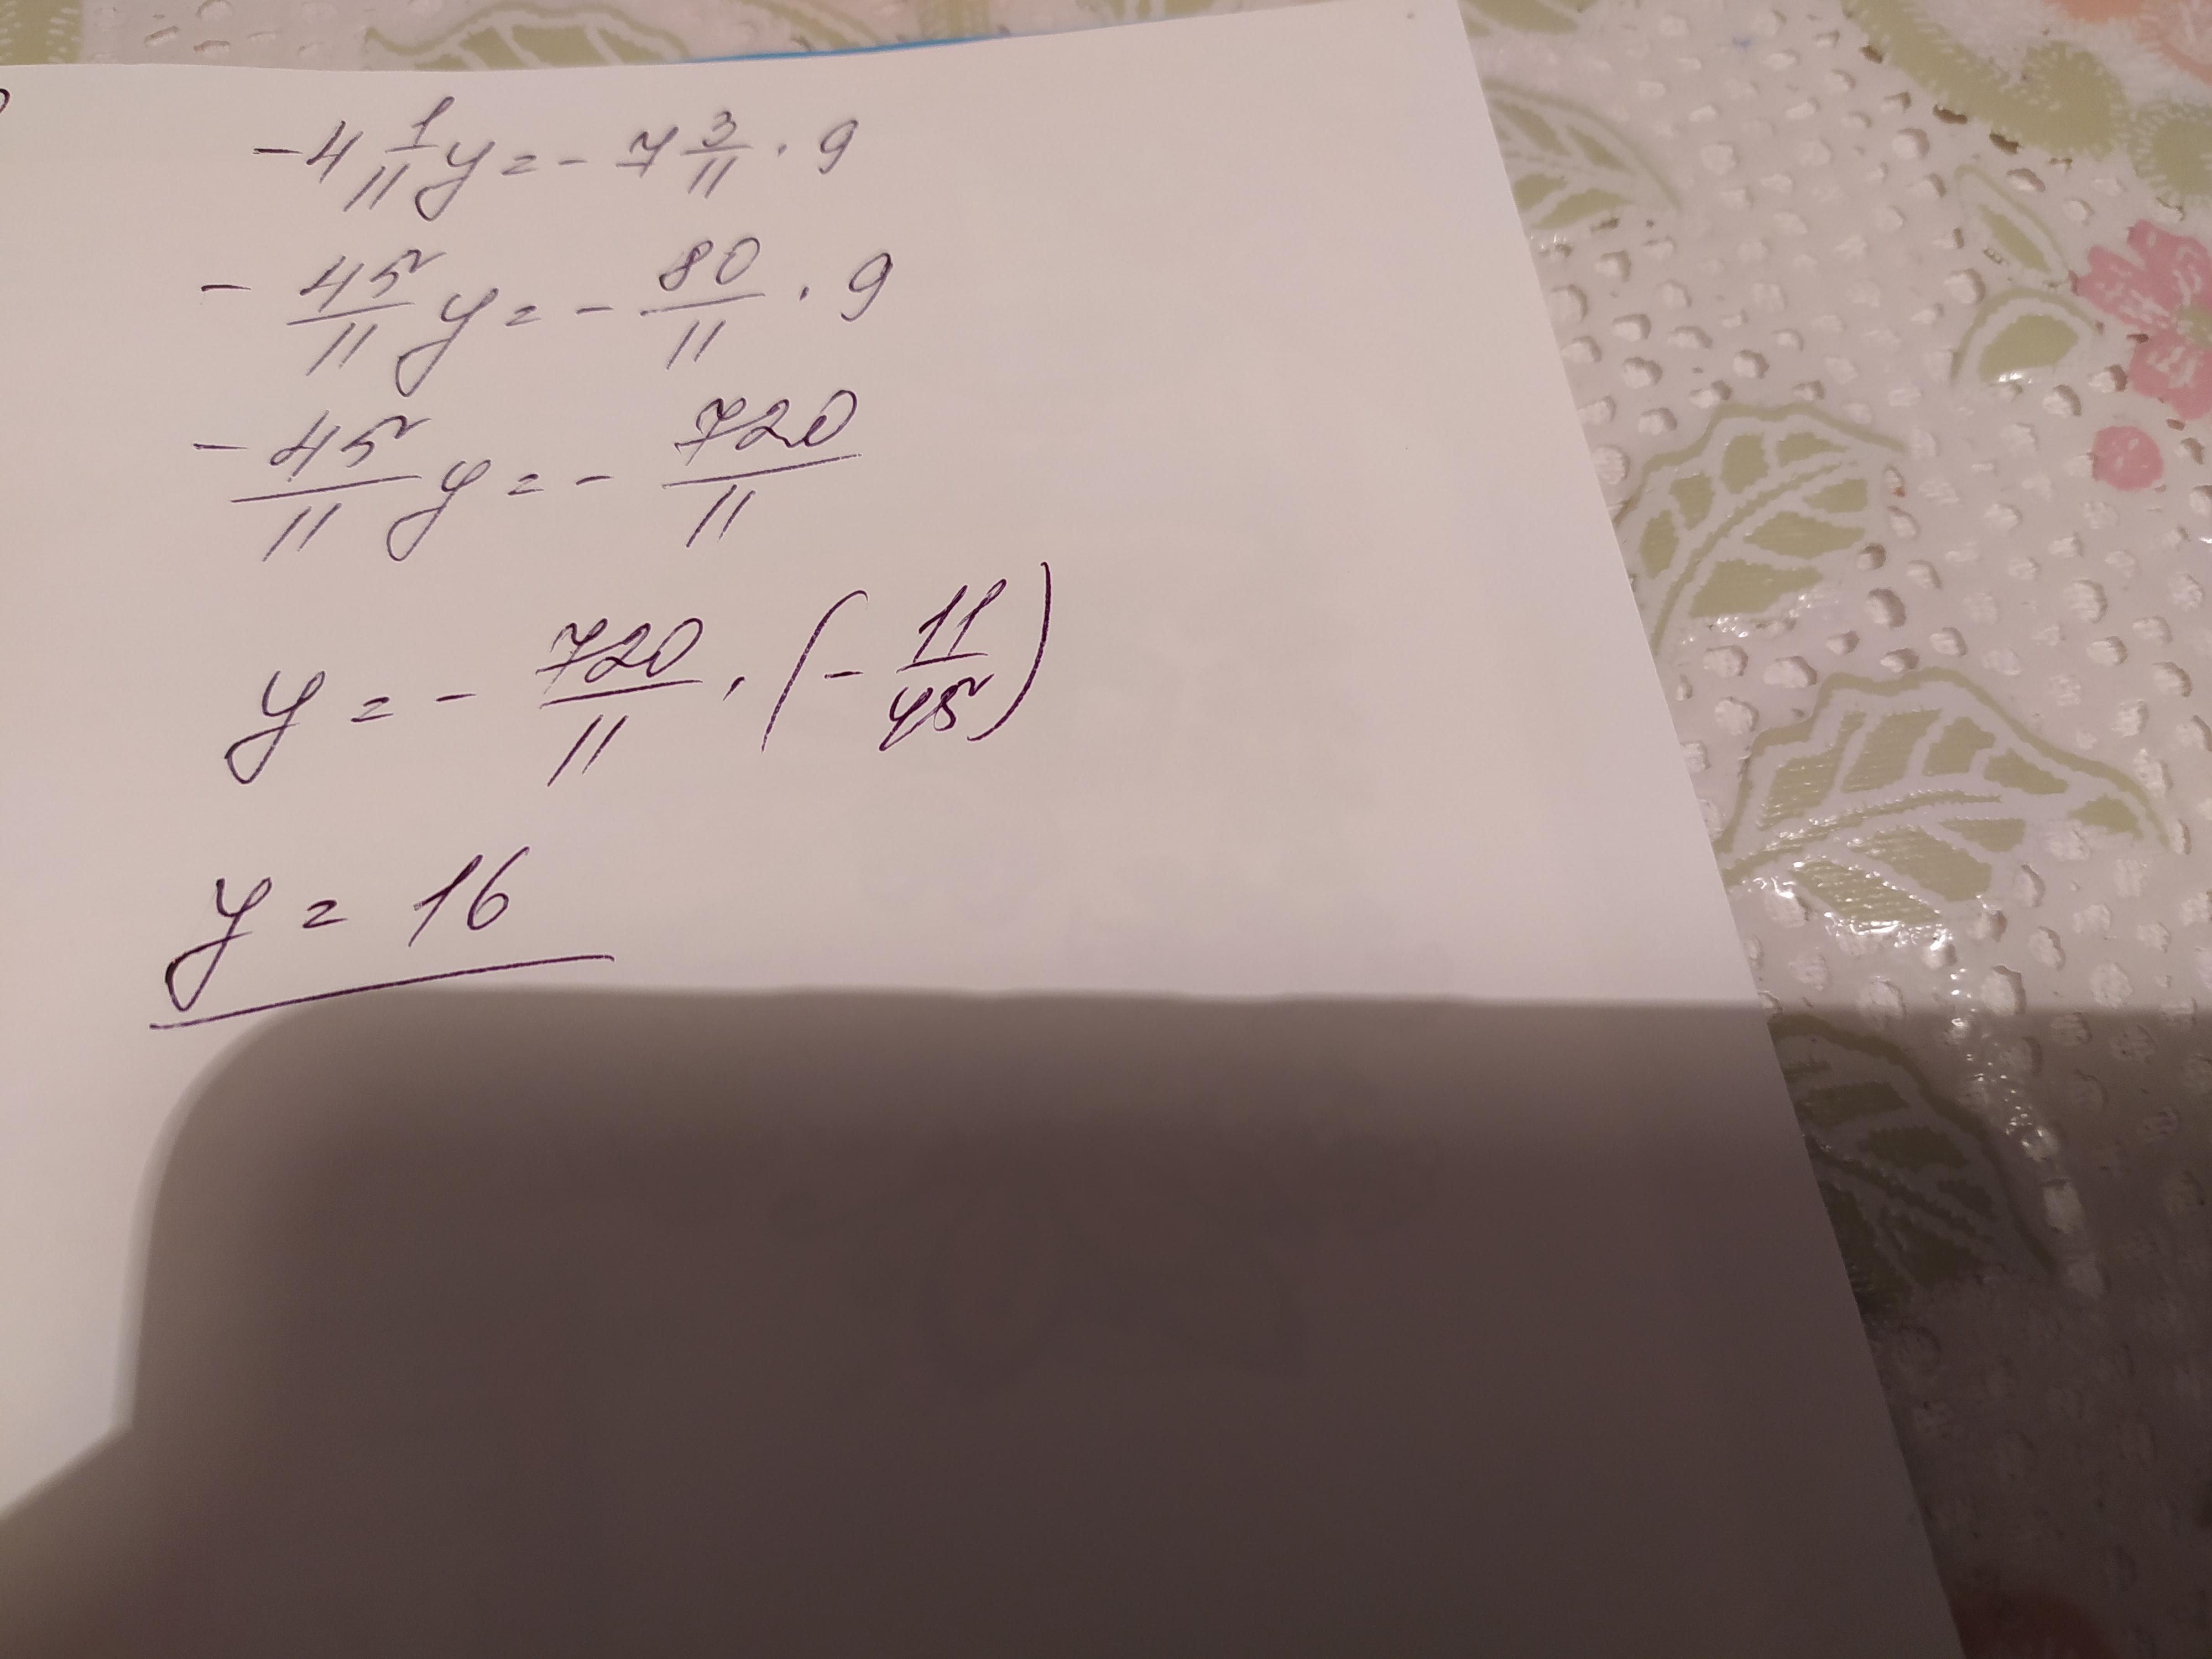 -4 1/11 y = -7 3/11 · 9
- 45/11 y = - 80/11 · 9
- 45/11 y = - 720/11
y = - 720/11 · (- 11/45)
y = 16